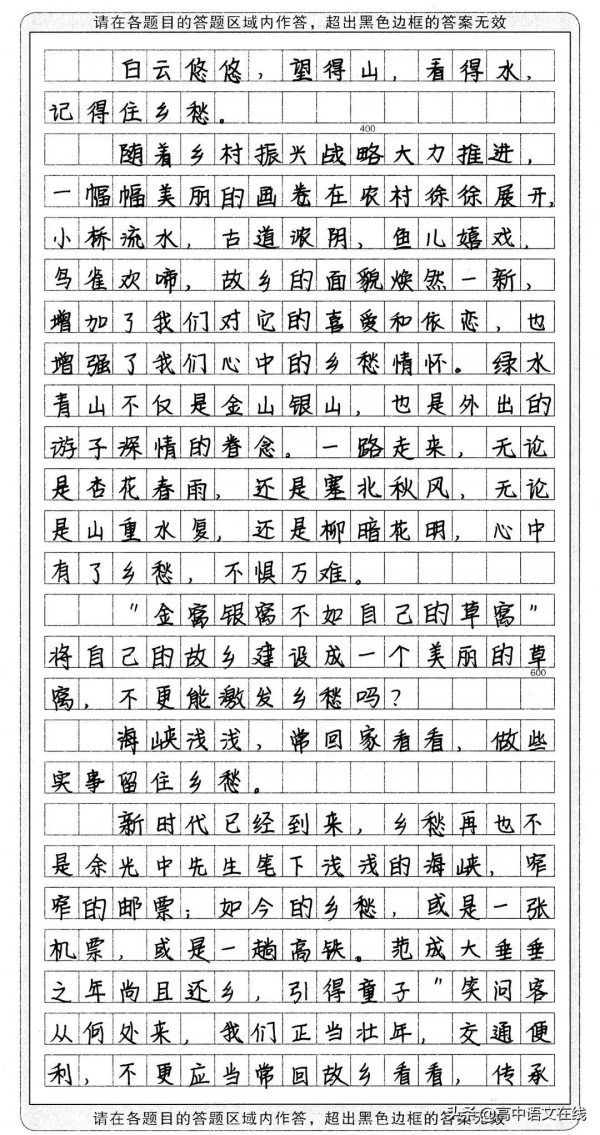 请在各题目的答题区域内作答，超出黑色边框的答案无效
白云悠悠，望得山，看得水，
记得住乡愁。
400
随着乡村振兴战略大力推进，
一幅幅美丽的画卷在农村徐徐展开，
小桥流水，古道浓阴，鱼儿嬉戏，
鸟雀欢啼，故乡的面貌焕然一新，
增加了我们对它的喜爱和依恋，也
增强了我们心中的乡愁情怀。绿水
青山不仅是金山银山，也是外出的
游子深情的眷念。一路走来，无论
是杏花春雨，还是塞北秋风，无论
是山重水复，还是柳暗花明，心中
有了乡愁，不惧万难。
“金窝银窝不如自己的草窝”
将自己的故乡建设成一个美丽的草
600
窝，不更能激发乡愁吗？
海峡浅浅，常回家看看，做些
实事留住乡愁。
新时代已经到来，乡愁再也不
是余光中先生笔下浅浅的海峡，窄
窄的邮票；如今的乡愁，或是一张
机票，或是一趟高铁。范成大垂垂
之年尚且还乡，引得童子“笑问客
从何处来，我们正当壮年，交通便
利，不更应当常回故乡看看，传承
请在各题目的答题区域内作答，超出黑色边框的答案无效
头条@高中语文在线